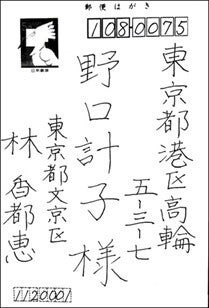 郵便はがき
108-0075
日本郵便
東京都港区高輪
五-三-七
野口計子様
東京都文京区
林香都恵
1120001